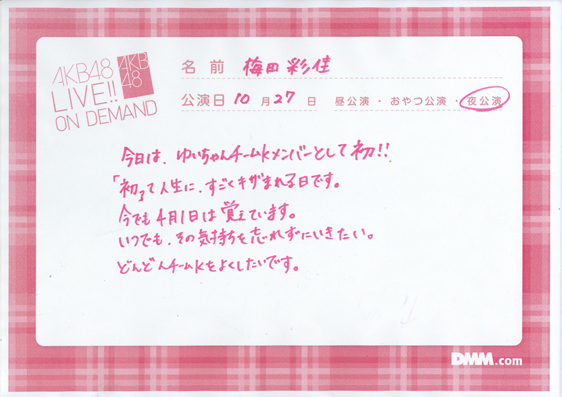 AKB48
LIVE!!
ON DEMAND
AKB
48
名前 梅田彩佳
公演日 10月27日 昼公演・おやつ公演・夜公演
今日は、ゆいちゃんチームKメンバーとして初!!
「初」って人生に、すごくキザまれる日です。
今でも4月1日は覚えています。
いつでも、その気持ちを忘れずにいきたい。
どんどんチームKをよくしたいです。
DMM.com